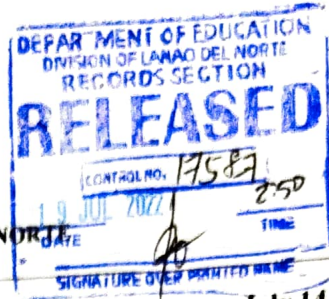 DEPARTMENT OF EDUCATION
DIVISION OF LANAO DEL NORTE
RECORDS SECTION
RELEASED
CONTROL NO. 17587
19 JUL 2022 2:50
NORTE
DATE TIME
SIGNATURE OVER PRINTED NAME